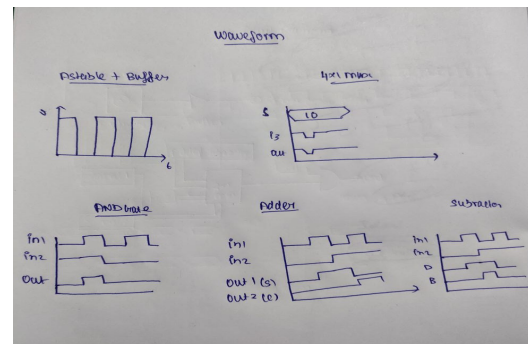 Waveform
Astable + Buffer
4x1 mux
S
10
I3
out
t
AND Gate
in1
in2
out
Adder
in1
in2
out 1 (S)
out 2 (C)
in1
in2
D
B